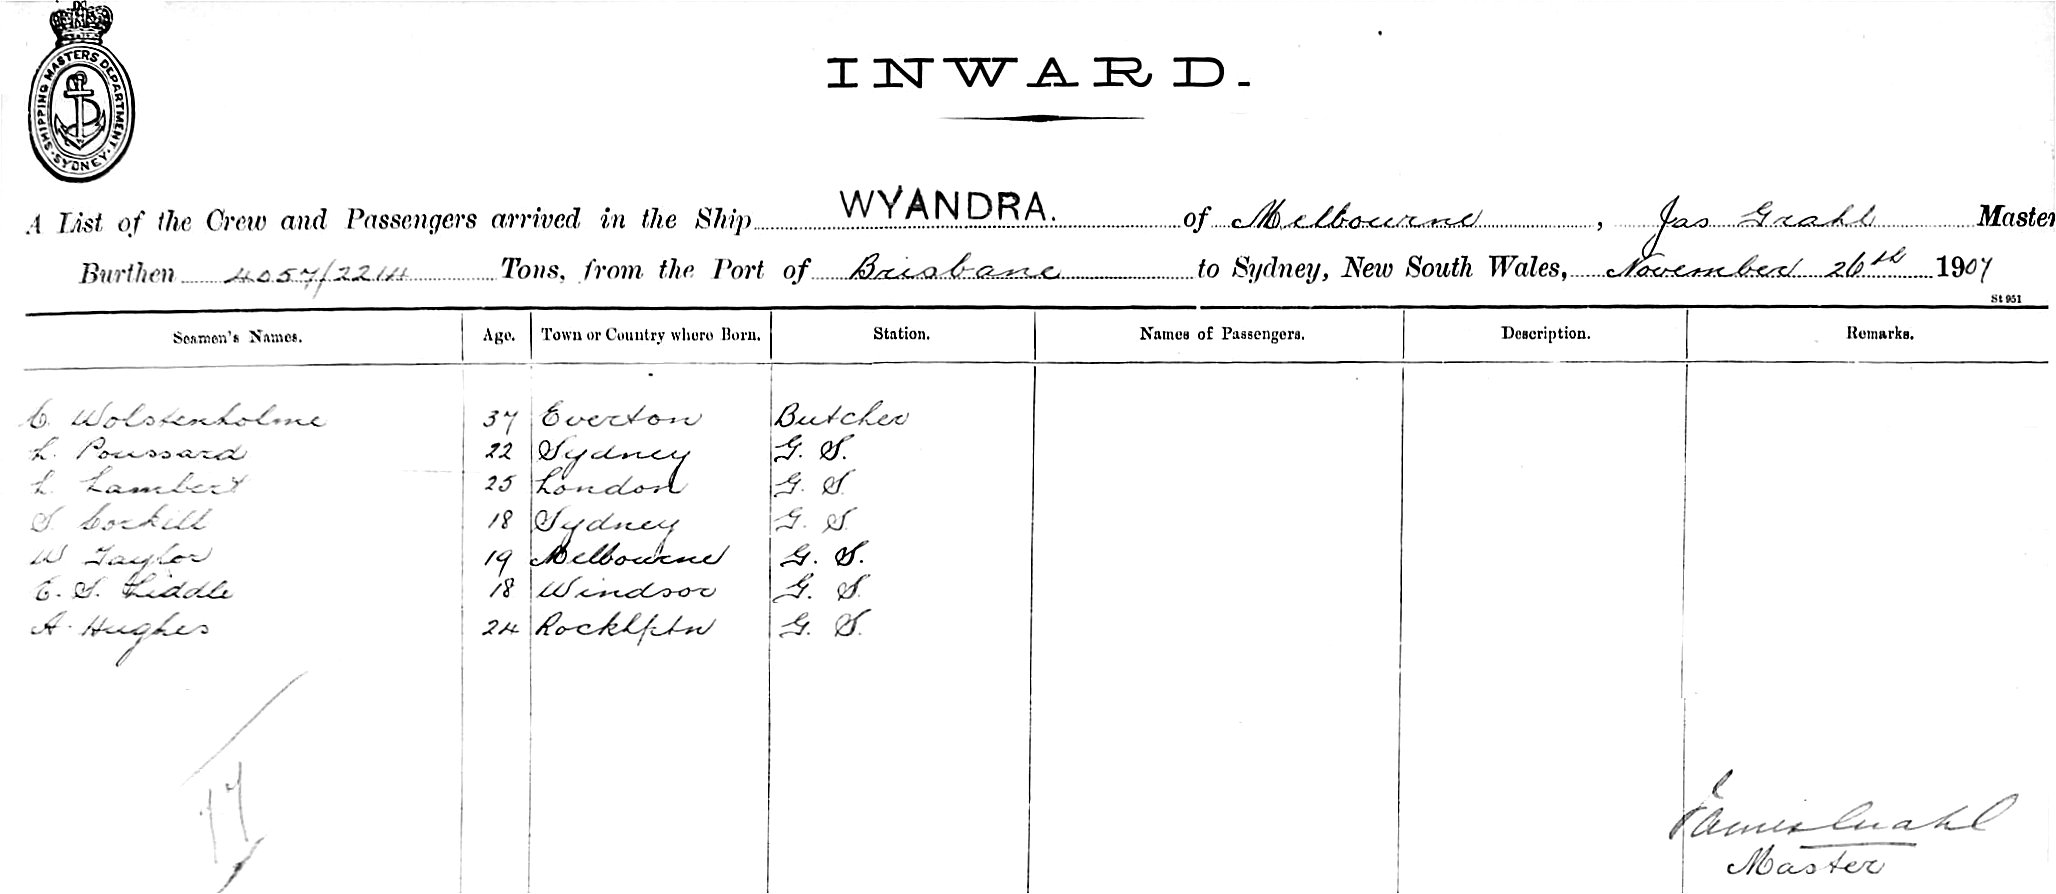 SHIPPING MASTERS DEPARTMENT. SYDNEY
INWARD.
A List of the Crew and Passengers arrived in the Ship WYANDRA. of Melbourne, Jas Grahl Master
Burthen 4057/2214 Tons, from the Port of Brisbane to Sydney, New South Wales, November 26th 1907
St 951
Seamen's Names. Age. Town or Country where Born. Station. Names of Passengers. Description. Remarks.
C. Wolstenholme 37 Everton Butcher
L. Poussard 22 Sydney G. S.
L. Lambert 25 London G. S.
S. Corkill 18 Sydney G. S.
W Taylor 19 Melbourne G. S.
E. S. Liddle 18 Windsor G. S.
A. Hughes 24 Rockhptn G. S.
77
James Grahl
Master